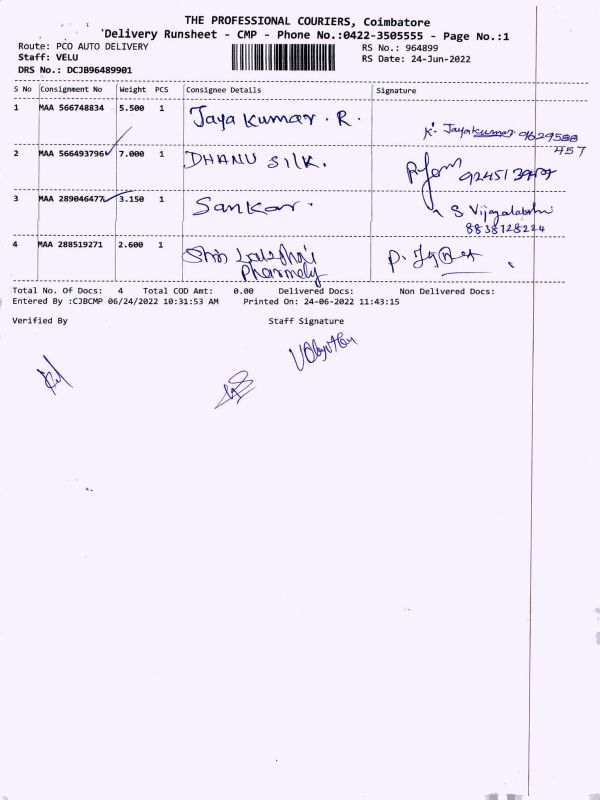 THE PROFESSIONAL COURIERS, Coimbatore
Delivery Runsheet - CMP - Phone No.:0422-3505555 - Page No.:1
Route: PCO AUTO DELIVERY RS No.: 964899
Staff: VELU RS Date: 24-Jun-2022
DRS No.: DCJB96489901
S No Consignment No Weight PCS Consignee Details Signature
1 MAA 566748834 5.500 1 Jayakumar . R.
K. Jayakumar 9629588
457
2 MAA 566493796 7.000 1 DHANU SILK.
3 MAA 289046477 3.150 1 Sankar.
S Vijayalakshmi
8838728224
4 MAA 288519271 2.600 1
Total No. Of Docs: 4 Total COD Amt: 0.00 Delivered Docs: Non Delivered Docs:
Entered By :CJBCMP 06/24/2022 10:31:53 AM Printed On: 24-06-2022 11:43:15
Verified By Staff Signature